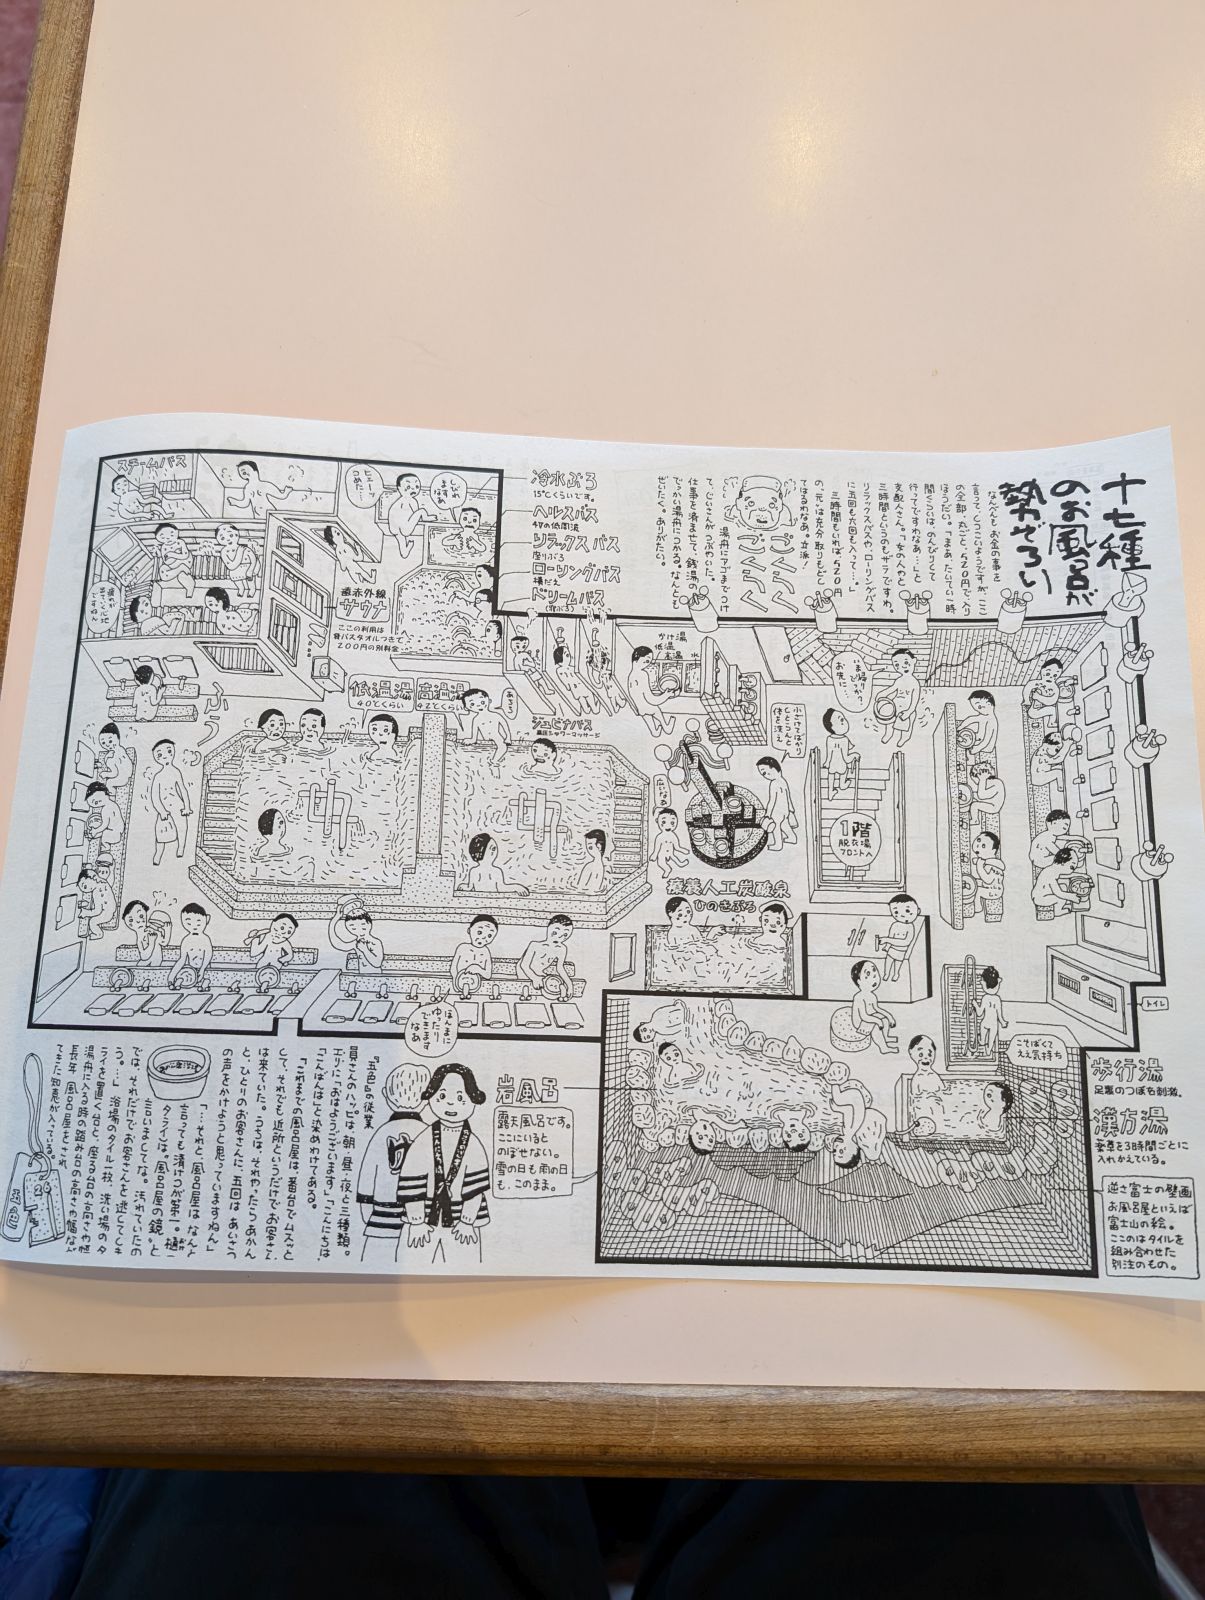 十七種
のお風呂が
勢ぞろい
なんべんもお金の事を
言って、しつこいようですが、ここ
の全部、丸ごと、520円で入り
ほうだい。「まあ、たいてい一時
間ぐらいは、のんびりして
行ってですわなあ…」と
支配人さん。「女の人やと
三時間というのもザラですね。
リラックスバスやローリングバス
に五回も六回も入って…。」
三時間もいれば、520円
の、元は充分取りもどし
てはるわなあ。立派!
湯舟にアゴまでつけ
て、じいさんがつぶやいた。
仕事を済ませて、銭湯の
でっかい湯舟につかる。なんとも
ぜいたく。ありがたい。
ごくらく
ごくらく
冷水ぶろ
15℃くらいです。
ヘルスバス
リラックスバス
座りぶろ
ローリングバス
ドリームバス
スチームバス
ヒェーッ
つめた…
しびれ
ますなあ
遠赤外線
サウナ
ここの利用は
貸バスタオルつきで
200円の別料金
ふう
低温湯
40℃くらい
高温湯
42℃くらい
あちち
ジェットバス
かけ湯
低温
高温
水
いま帰りか?
お先に
1階
脱衣場
フロントへ
療養人工炭酸泉
ひのきぶろ
トイレ
こそばくて
ええ気持ち
歩行湯
足裏のつぼを刺激。
漢方湯
薬草を3時間ごとに
入れかえている。
逆さ富士の壁画
お風呂屋といえば
富士山の絵。
ここのはタイルを
組み合わせた
別注のもの。
岩風呂
露天風呂です。
ここにいると
のぼせない。
雪の日も雨の日
も、このまま。
ほんまに
ゆったり
できます
なあ
『五色』の従業
員さんのハッピは、朝・昼・夜と三種類。
エリに「おはようございます」「こんにちは」
「こんばんは」と染めわけてある。
「これまでの風呂屋は、番台でムスッと
して、それでも近所というだけでお客さん
は来ていた。今は、それやったらあかん
と、ひとりのお客さんに、五回はあいさつ
の声をかけようと思っていますねん」
「…それと、風呂屋は、なんと
言っても清けつが第一。樋や
タライは、風呂屋の鏡」と
言いましてな。汚れていたの
では、それだけでお客さんを逃してしま
う。…」浴場のタイル一枚、洗い場のタ
ライを置く台と、座る台の高さや幅
湯舟に入る時の踏み台の高さや幅なんか
長年、風呂屋をされ
てきた知恵が入っている。